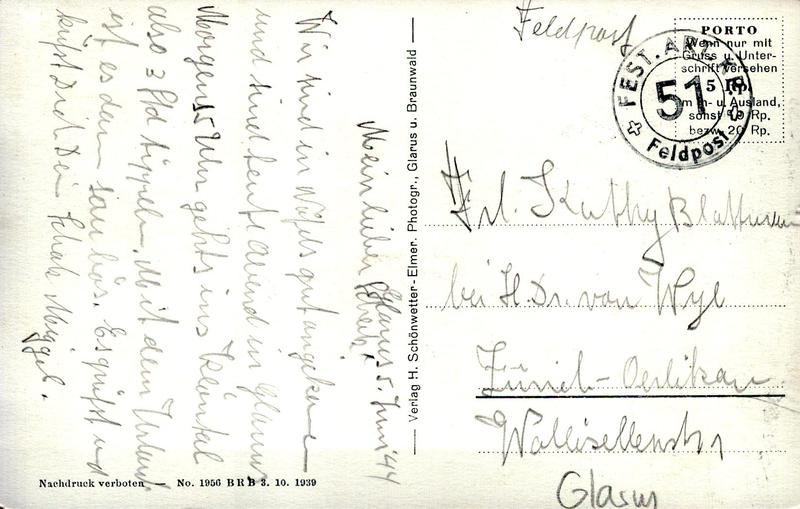 Feldpost
FEST. ART. K
51
Feldpost
PORTO
Wenn nur mit
Gruss u. Unter-
schrift versehen
5 Rp.
im In- u. Ausland,
sonst 10 Rp.
bezw. 20 Rp.
Frl. Kathy
bei H. Dr. von Wyl
Zürich-Oerlikon
Wallisellenstr
Glarus
Verlag H. Schönwetter-Elmer. Photogr., Glarus u. Braunwald
Glarus 5. Juni 44
Mein lieber Schatz,
Wir sind in Näfels gut angekommen
und sind heute abend in Glarus
Morgen 5 Uhr gehts ins Klöntal
also 3 Std tippeln. Mit dem Urlaub
ist es dann sau bös. Es grüsst und
küsst Dich Dein Schatz Miggel.
Nachdruck verboten – No. 1956 BRB 3. 10. 1939